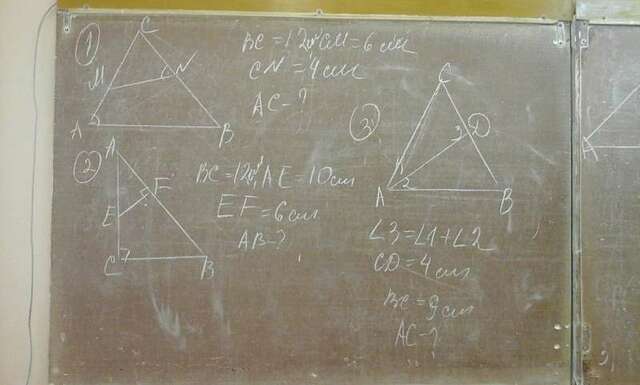 1
C
M
N
A
B
BC = 12 см CM = 6 см
CN = 4 см
AC - ?
2
A
F
E
C
B
BC = 12 см, AE = 10 см
EF = 6 см
AB - ?
3
C
3
D
1
2
A
B
∠3 = ∠1 + ∠2
CD = 4 см
BC = 9 см
AC - ?